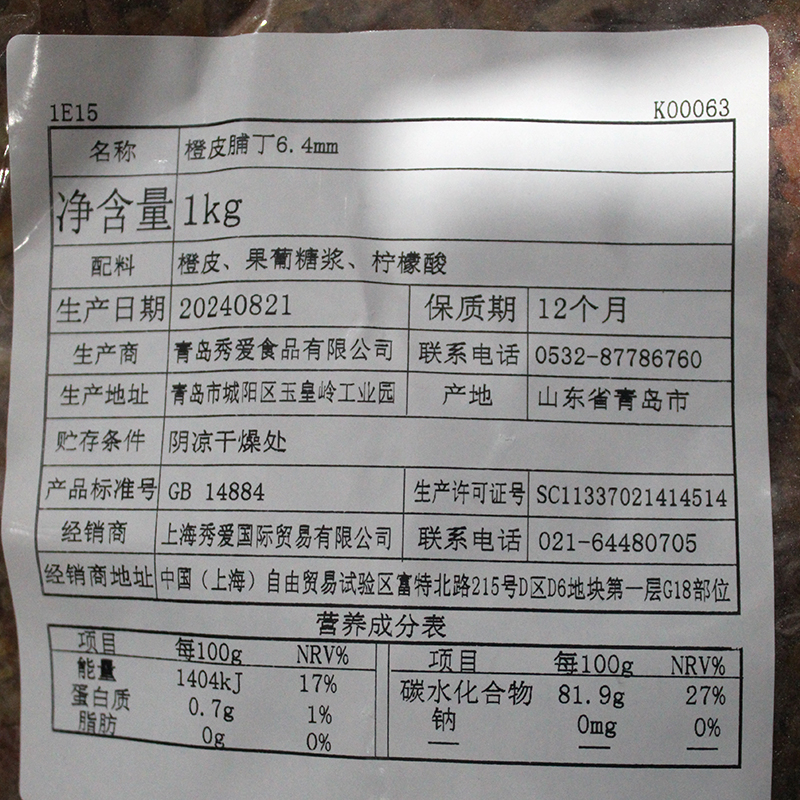 1E15 K00063
名称 橙皮脯丁6.4mm
净含量 1kg
配料 橙皮、果葡糖浆、柠檬酸
生产日期 20240821 保质期 12个月
生产商 青岛秀爱食品有限公司 联系电话 0532-87786760
生产地址 青岛市城阳区玉皇岭工业园 产地 山东省青岛市
贮存条件 阴凉干燥处
产品标准号 GB 14884 生产许可证号 SC11337021414514
经销商 上海秀爱国际贸易有限公司 联系电话 021-64480705
经销商地址 中国（上海）自由贸易试验区富特北路215号D区D6地块第一层G18部位
营养成分表
项目 每100g NRV% 项目 每100g NRV%
能量 1404kJ 17% 碳水化合物 81.9g 27%
蛋白质 0.7g 1% 钠 0mg 0%
脂肪 0g 0% — — —